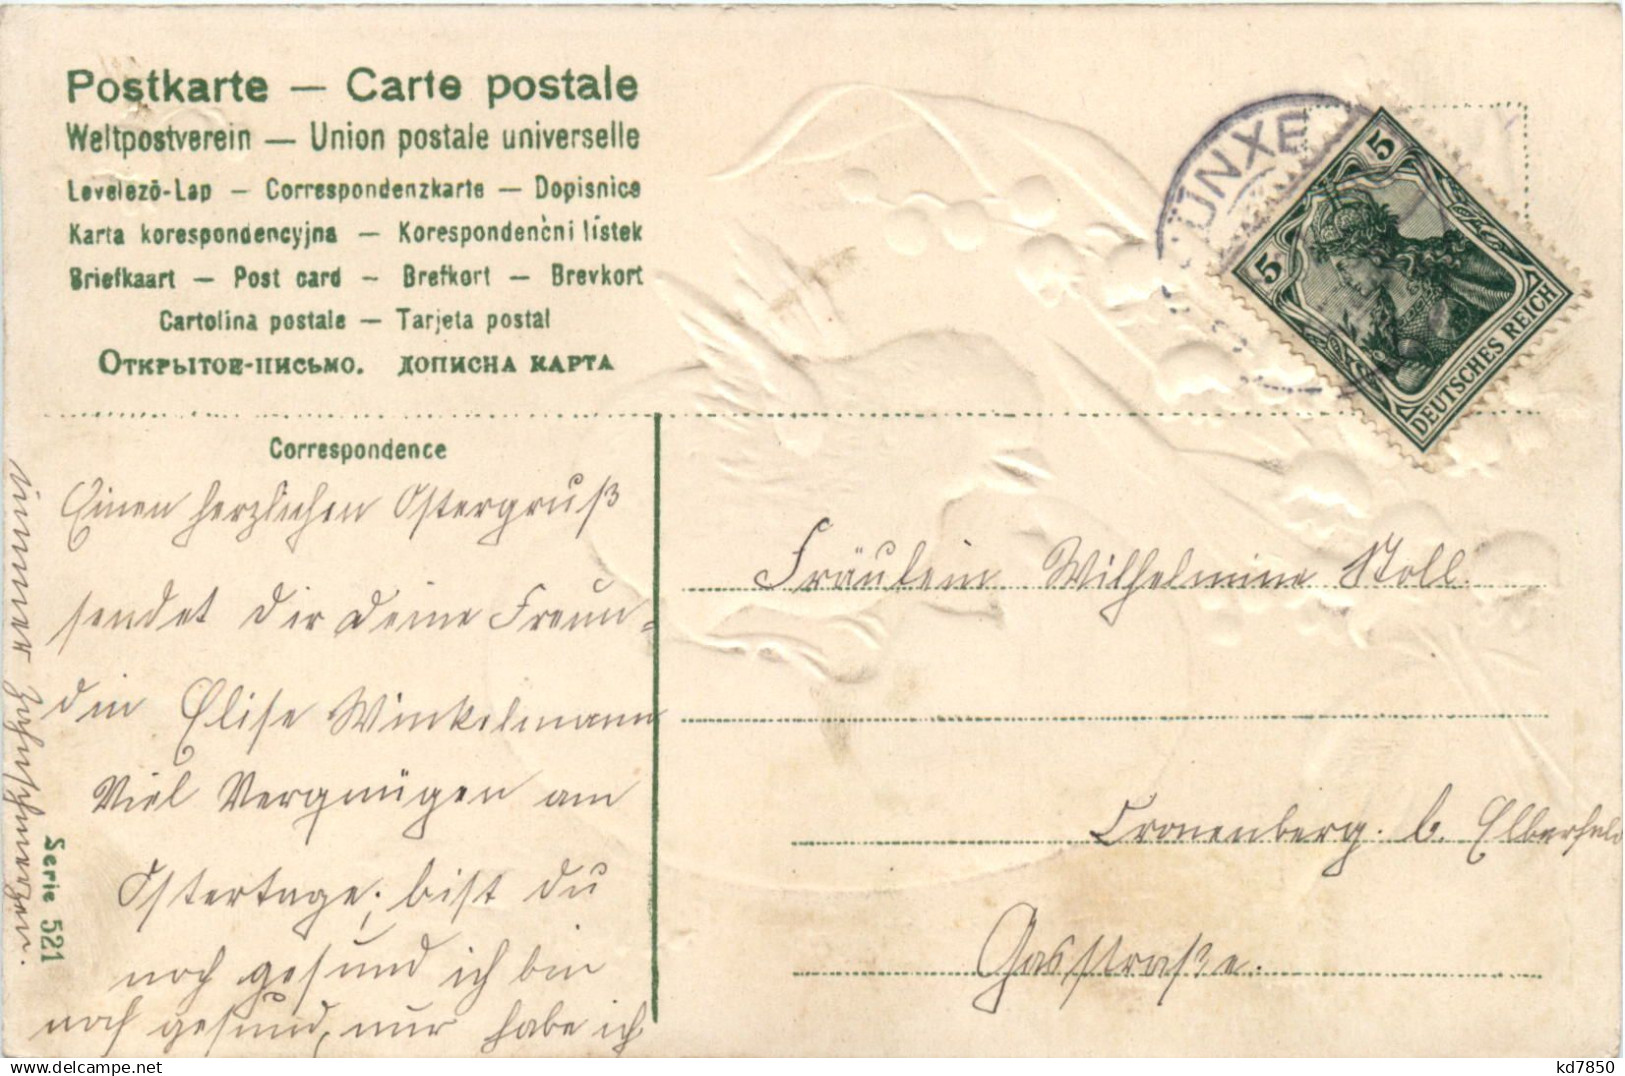 Postkarte — Carte postale
Weltpostverein — Union postale universelle
Levelezō-Lap — Correspondenzkarte — Dopisnice
Karta korespondencyjna — Korespondenčni lístek
Briefkaart — Post card — Brefkort — Brevkort
Cartolina postale — Tarjeta postal
Открытое-письмо. дописна карта
Correspondence
Einen herzlichen Ostergruß
sendet dir deine Freun-
din Elise Winkelmann
Viel Vergnügen am
Ostertage, bist du
noch gesund ich bin
noch gesund, nur habe ich
immer Zahnschmerzen.
Serie 521
ÜNXE
5
5
DEUTSCHES REICH
Fräulein Wilhelmine Stoll.
Cronenberg. b. Elberfeld
Gasstraße.